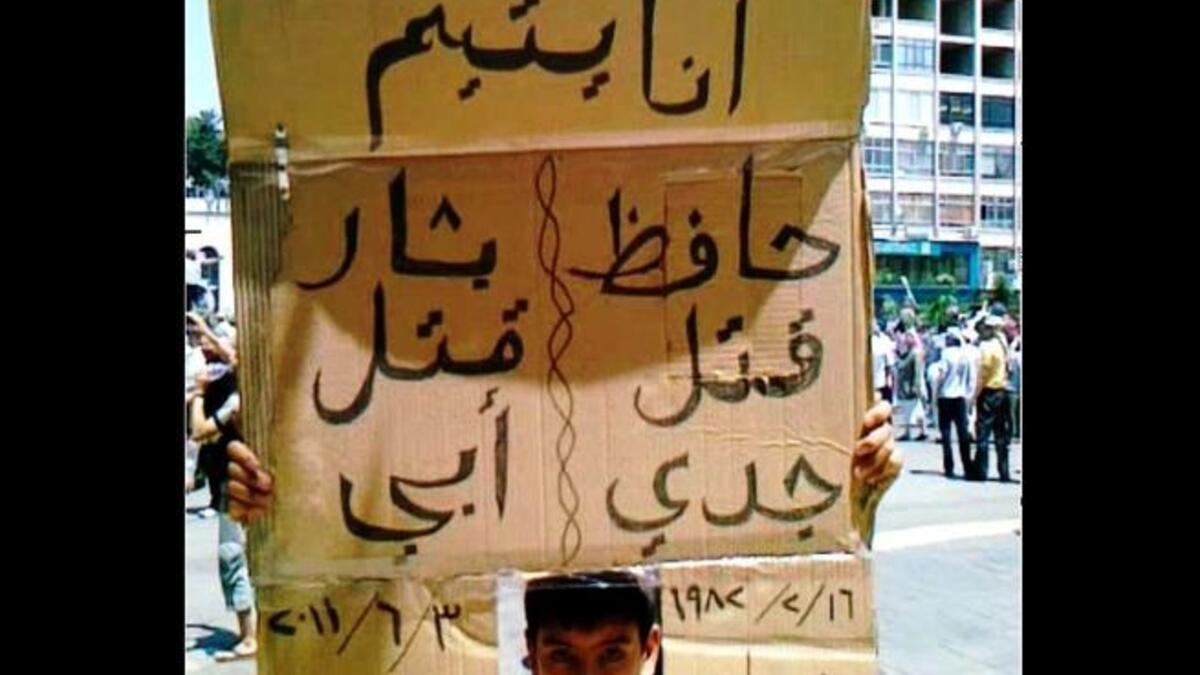 أنا يتيم
حافظ
قتل
جدي
بشار
قتل
أبي
١٩٨٢/٢/١٦
٢٠١١/٦/٣